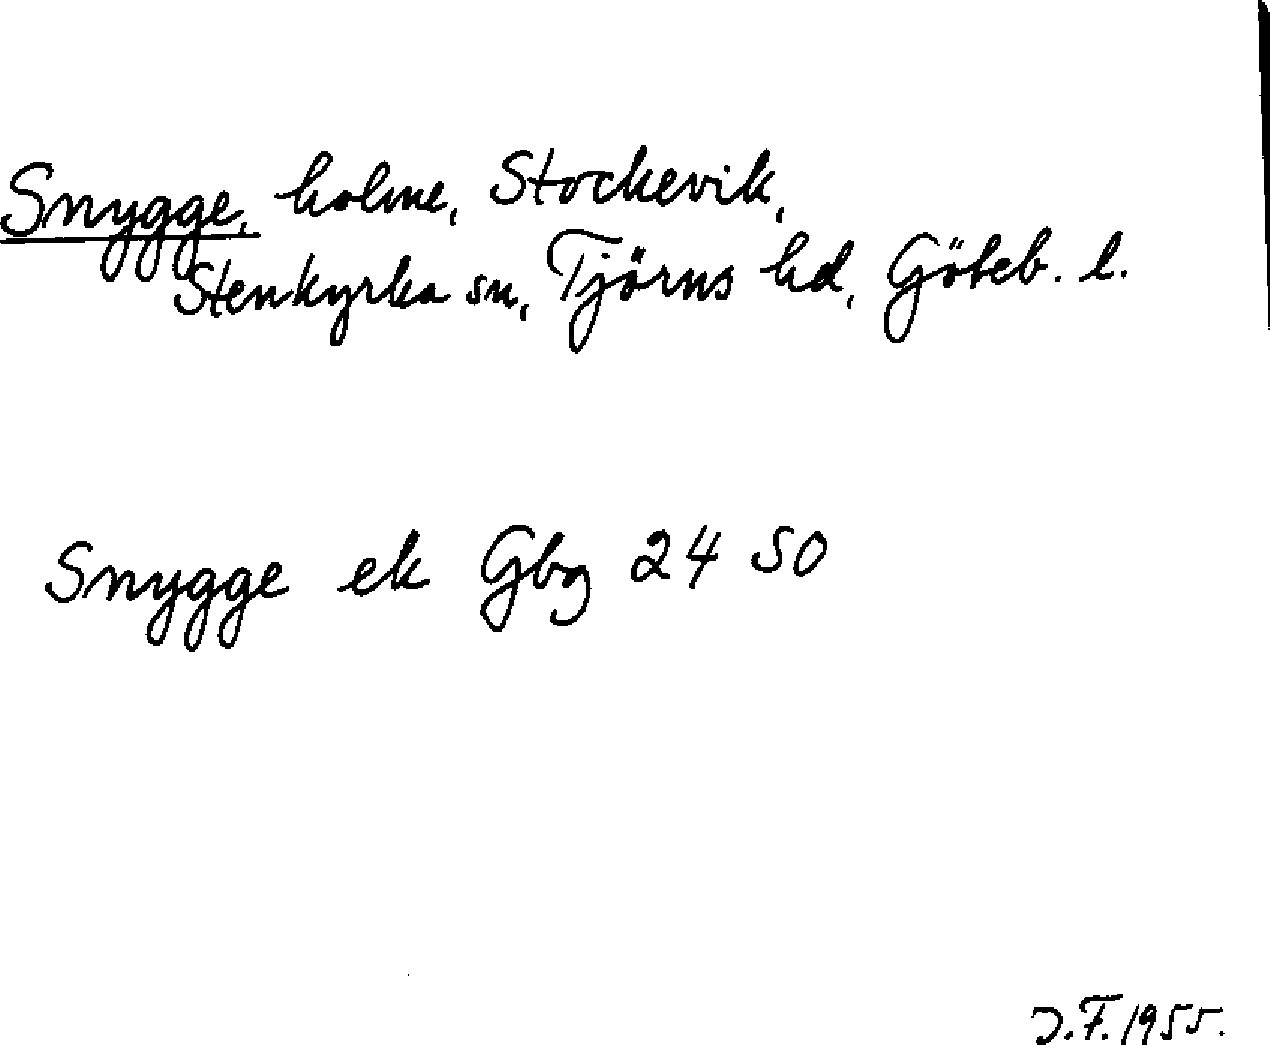 Snygge, holme, Stockevik,
Stenkyrka sn, Tjörns hd, Göteb. l.
Snygge ek Gbg 24 SO
J.F. 1955.